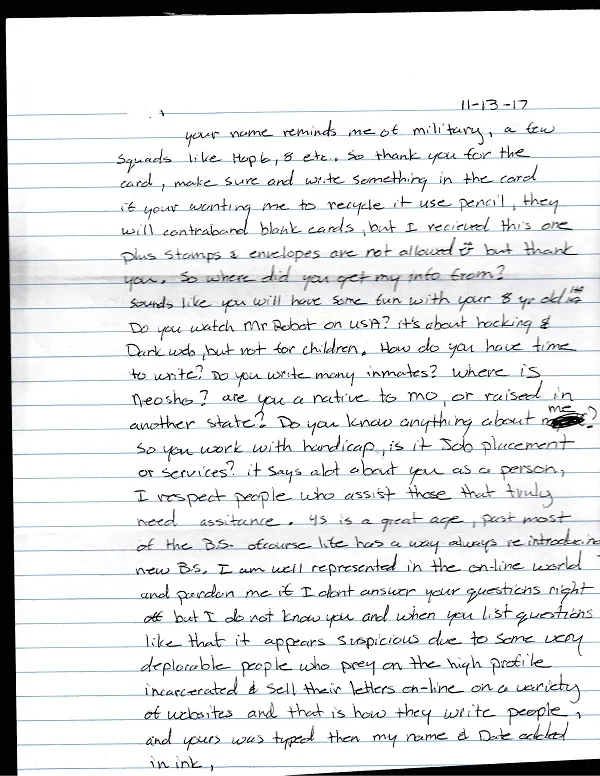 11-13-17
your name reminds me of military, a few
Squads like Hop 6, 8 etc.. So thank you for the
card, make sure and write something in the card
if your wanting me to recycle it use pencil, they
will contraband blank cards, but I recieved this one
plus stamps & envelopes are not allowed but thank
you. So where did you get my info from?
Sounds like you will have some fun with your 8 yr old
Do you watch Mr Robot on USA? it's about hacking &
Dark web, but not for children. How do you have time
to write? Do you write many inmates? Where is
Neosho? are you a native to mo, or raised in
another state? Do you know anything about me?
So you work with handicap, is it Job placement
or services? it says alot about you as a person,
I respect people who assist those that truly
need assitance. 45 is a great age, past most
of the B.S. ofcourse life has a way always re introducing
new B.S. I am well represented in the on-line world
and pardon me if I dont answer your questions right
off but I do not know you and when you list questions
like that it appears suspicious due to some very
deplorable people who prey on the high profile
incarcerated & sell their letters on-line on a variety
of websites and that is how they write people,
and yours was typed then my name & Date added
in ink,